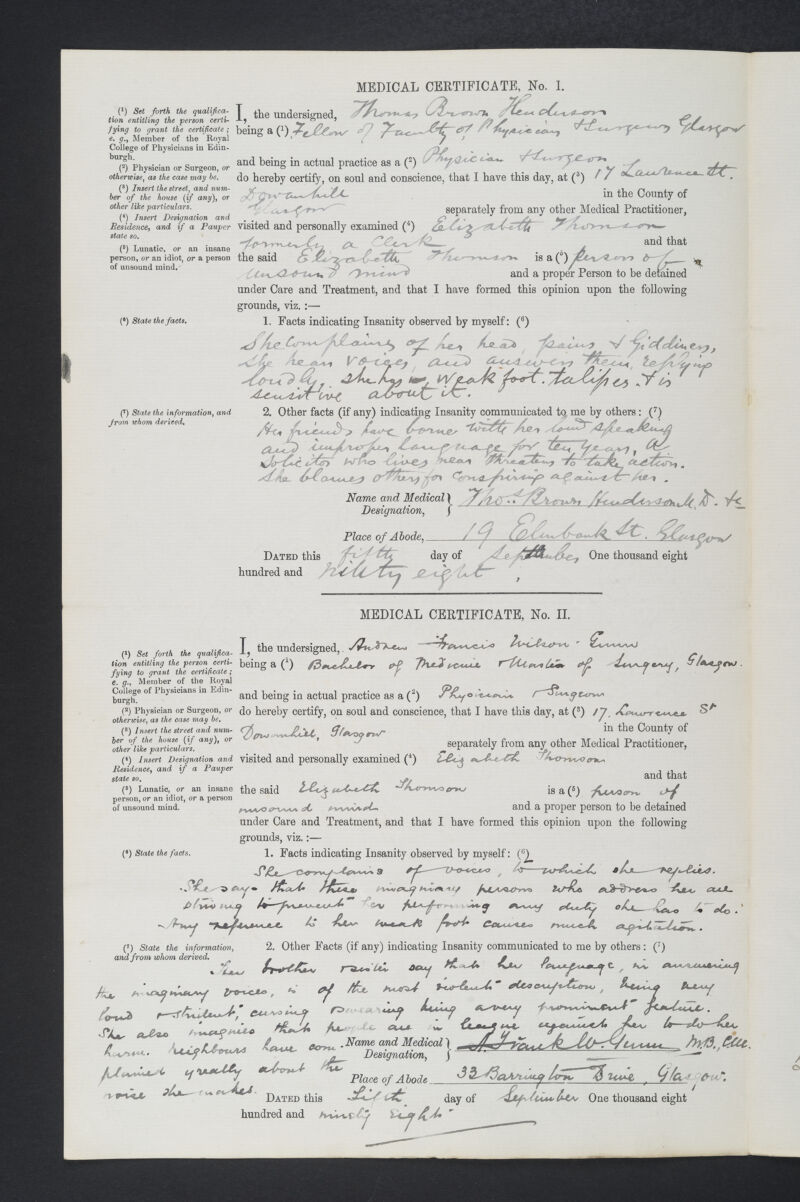 MEDICAL CERTIFICATE, No. I.
(¹) Set forth the qualifica-
tion entitling the person certi-
fying to grant the certificate;
e. g., Member of the Royal
College of Physicians in Edin-
burgh.
(²) Physician or Surgeon, or
otherwise, as the case may be.
(³) Insert the street, and num-
ber of the house (if any), or
other like particulars.
(⁴) Insert Designation and
Residence, and if a Pauper
state so.
(⁵) Lunatic, or an insane
person, or an idiot, or a person
of unsound mind.
I, the undersigned, Thomas Brown Henderson
being a (¹) Fellow of Faculty of Physicians & Surgeons Glasgow
and being in actual practice as a (²) Physician & Surgeon
do hereby certify, on soul and conscience, that I have this day, at (³) 17 Lawrence St.
Dowanhill in the County of
Glasgow separately from any other Medical Practitioner,
visited and personally examined (⁴) Elizabeth Thomson
formerly a Clerk and that
the said Elizabeth Thomson is a (⁵) person of
unsound mind and a proper Person to be detained
under Care and Treatment, and that I have formed this opinion upon the following
grounds, viz. :—
(⁶) State the facts.
1. Facts indicating Insanity observed by myself: (⁶)
She complains of her head, pains & Giddiness,
she hears voices, and answers them, replying
loudly. she has weak foot. talipes. & is
sensitive about it.
(⁷) State the information, and
from whom derived.
2. Other facts (if any) indicating Insanity communicated to me by others: (⁷)
Her friends have borne with her loud speaking
and improper language for ten years, a
Solicitor who lives near threatens to take action.
She blames others for conspiring against her.
Name and Medical Designation, Thos. Brown Henderson M.D. &c
Place of Abode, 19 Elmbank St. Glasgow
DATED this fifth day of September One thousand eight
hundred and ninety eight
MEDICAL CERTIFICATE, No. II.
(¹) Set forth the qualifica-
tion entitling the person certi-
fying to grant the certificate;
e. g., Member of the Royal
College of Physicians in Edin-
burgh.
(²) Physician or Surgeon, or
otherwise, as the case may be.
(³) Insert the street and num-
ber of the house (if any), or
other like particulars.
(⁴) Insert Designation and
Residence, and if a Pauper
state so.
(⁵) Lunatic, or an insane
person, or an idiot, or a person
of unsound mind.
I, the undersigned, Andrew Francis Wilson Gunn
being a (¹) Bachelor of Medicine & Master of Surgery, Glasgow.
and being in actual practice as a (²) Physician & Surgeon
do hereby certify, on soul and conscience, that I have this day, at (³) 17, Lawrence St
Dowanhill, Glasgow in the County of
separately from any other Medical Practitioner,
visited and personally examined (⁴) Elizabeth Thomson
and that
the said Elizabeth Thomson is a (⁵) person of
unsound mind and a proper person to be detained
under Care and Treatment, and that I have formed this opinion upon the following
grounds, viz. :—
(⁶) State the facts.
1. Facts indicating Insanity observed by myself: (⁶)
She complains of voices, to which she replies.
She says that these imaginary persons who address her are
striving to prevent her performing any duty she has to do.
Any reference to her weak foot causes much agitation.
(⁷) State the information,
and from whom derived.
2. Other Facts (if any) indicating Insanity communicated to me by others: (⁷)
Her brother & sister say that her language, in answering
the imaginary voices, is of the most violent description, being very
loud & strident, cursing & swearing being a very prominent feature.
She also imagines that people are in league against her to do her
harm. Neighbours have com-
plained greatly about the
noise she makes.
Name and Medical Designation, A. Frank W. Gunn M.B., C.M.
Place of Abode 33 Barrington Drive, Glasgow.
DATED this Fifth day of September One thousand eight
hundred and ninety eight